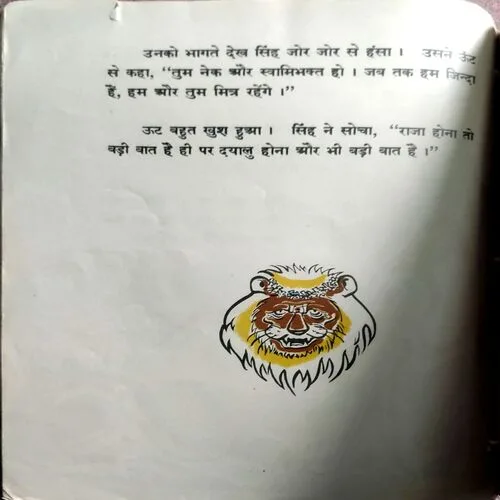 उनको भागते देख सिंह जोर जोर से हंसा । उसने ऊंट
से कहा, “तुम नेक और स्वामिभक्त हो । जब तक हम ज़िन्दा
हैं, हम और तुम मित्र रहेंगे ।”
उट बहुत खुश हुआ । सिंह ने सोचा, “राजा होना तो
बड़ी बात है ही पर दयालु होना और भी बड़ी बात है ।”